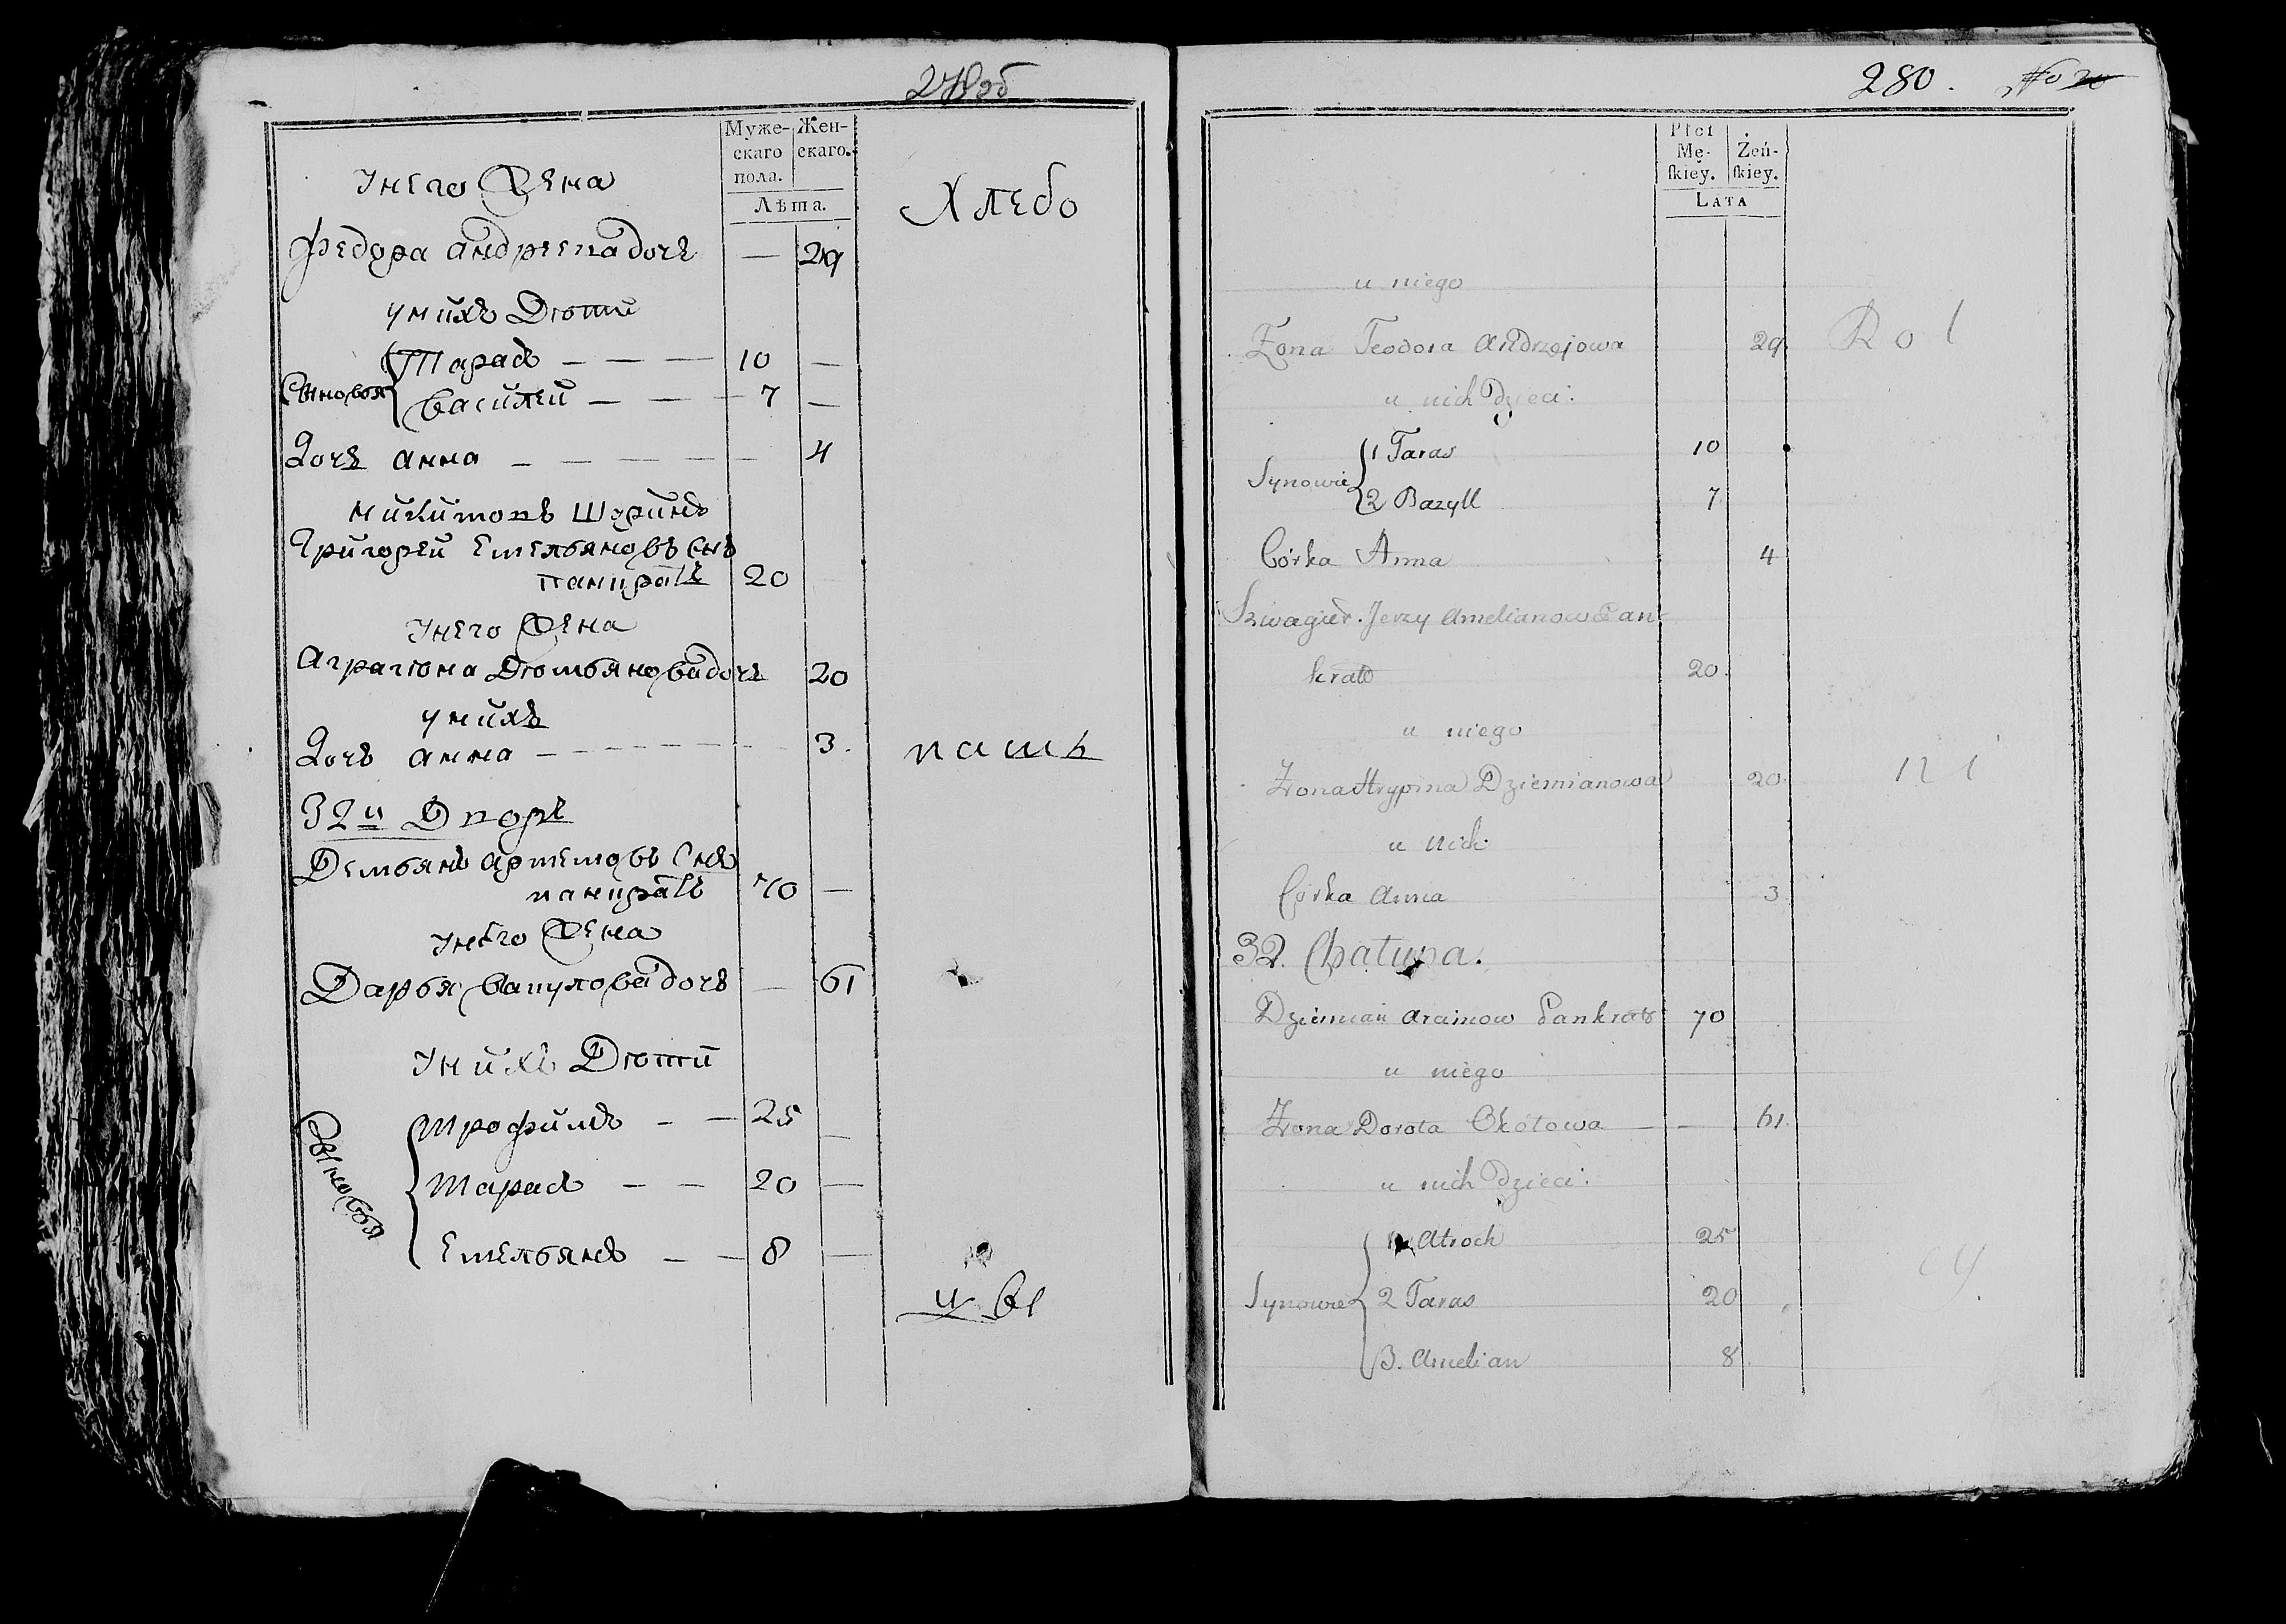 279об
Муже-
скаго
пола.
Жен-
скаго.
Лѣта.
Хлебо
Унего Жена
Федора андреева дочь
29
Унихъ Дѣти
Сыновья
Тарасъ
10
василей
7
Дочь анна
4
микитовъ Шуринъ
Григорей Емельяновъ Снъ
панкратъ
20
Унего Жена
Аграпіона Дѣмьянова дочь
20
Унихъ
Дочь анна
3.
паш
32й Дворъ
Демьянъ артемовъ Снъ
панкратъ
70
Унего Жена
Дарья вакулова дочь
61
Унихъ Дѣти
Сыновья
Трофимъ
25
Тарасъ
20
Емельянъ
8
цы
280.
Płci
Mę-
ſkiey.
Żeń-
ſkiey.
LATA
u niego
Zona Teodora Andrzejowa
29.
Rol
u nich Dzieci.
Synowie
1 Taras
10
2 Bazyll
7
Córka Anna
4
Szwagier. Jerzy Amelianow Pan-
krato
20.
u niego
Zona Dziemianowa
20
ni
u nich
Córka Anna
3
32. Chałupa.
Dziemian Pankrato
70
u niego
Zona Dorota
61.
u nich Dzieci.
Synowie
Atroch
25
2 Taras
20
cy.
3. Amelian
8